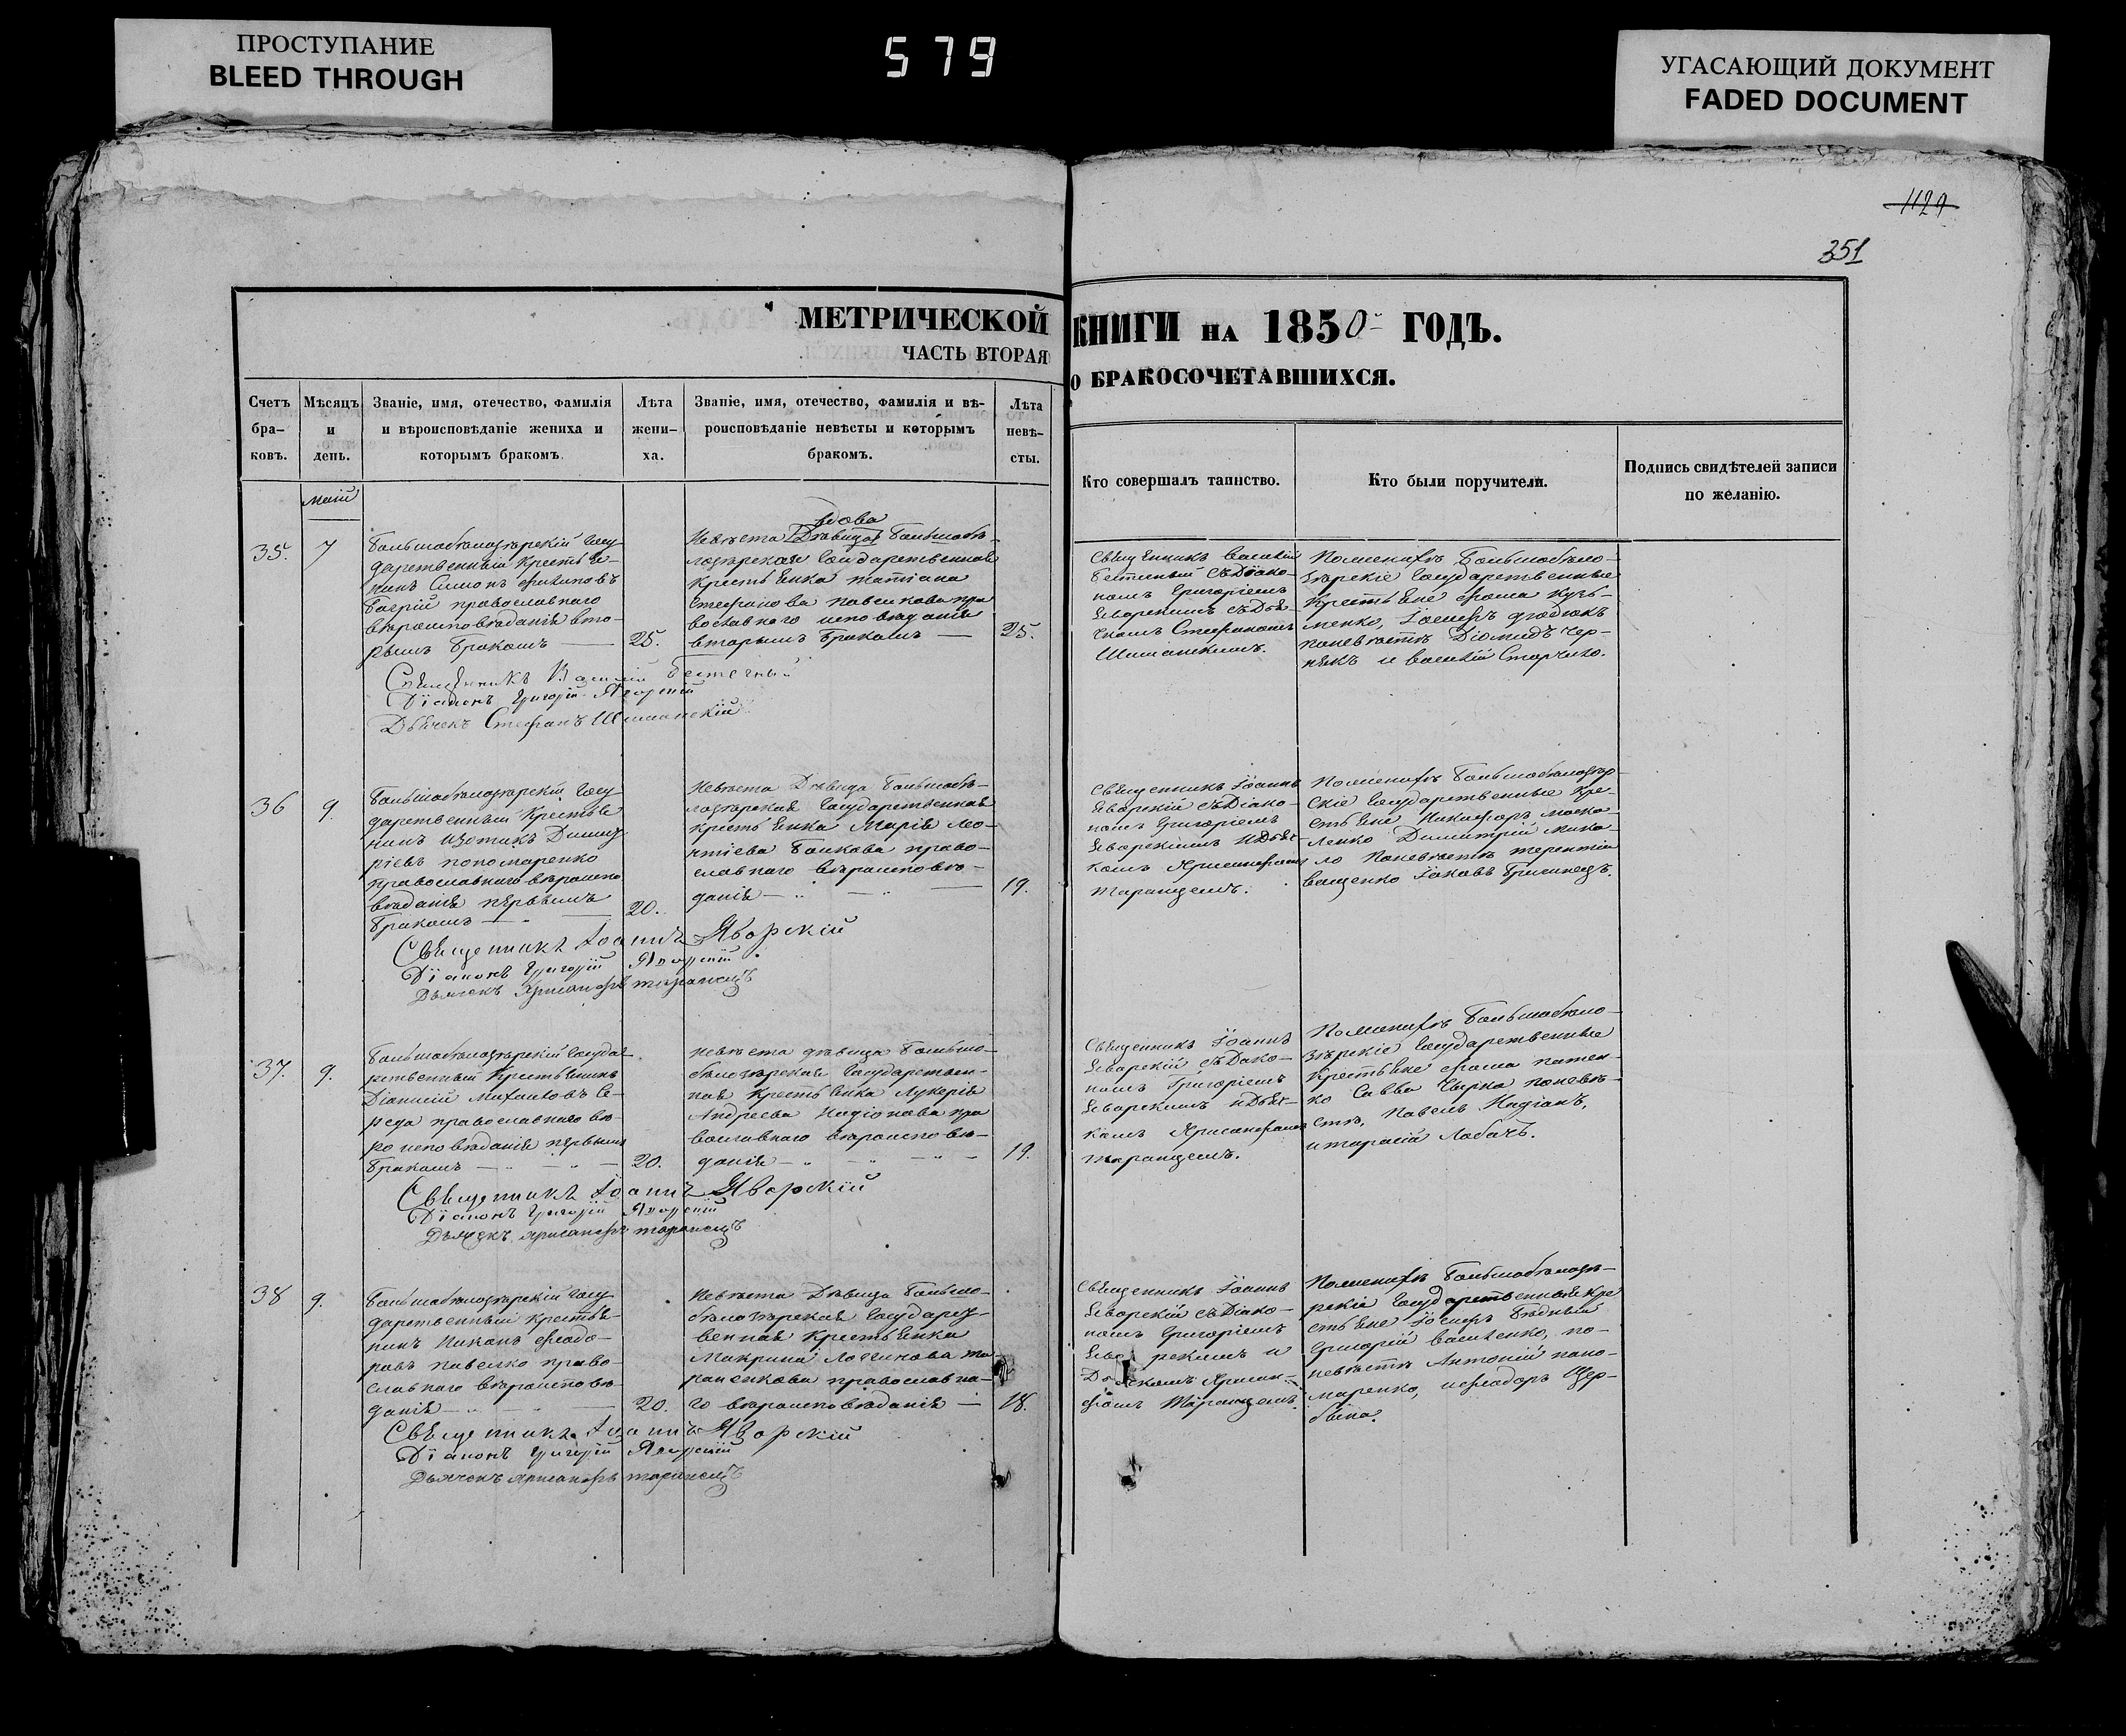 ПРОСТУПАНИЕ
BLEED THROUGH
579
УГАСАЮЩИЙ ДОКУМЕНТ
FADED DOCUMENT
1129
351
МЕТРИЧЕСКОЙ КНИГИ НА 1850 ГОДЪ.
ЧАСТЬ ВТОРАЯ О БРАКОСОЧЕТАВШИХСЯ.
Счетъ бра-ковъ.
Мѣсяцъ и день.
Званіе, имя, отечество, фамилія и вѣроисповѣданіе жениха и которымъ бракомъ.
Лѣта жени-ха.
Званіе, имя, отечество, фамилія и вѣ-роисповѣданіе невѣсты и которымъ бракомъ.
Лѣта невѣ-сты.
Кто совершалъ таинство.
Кто были поручители.
Подпись свидѣтелей записи по желанію.
Маій
35. 7
Большобѣлозѣрскій Госу
дарственный Крестья-
нинъ Симонъ
православнаго
вѣроисповѣданія вто-
рымъ Бракомъ
25.
вдова
Невѣста Дѣвица Большобѣ-
лозѣрская Государственная
Крестьянка Татіана
Стефанова Павликова пра
вославнаго исповѣданія
вторымъ Бракомъ
25.
Священникъ Василій
съ Діако-
номъ Григоріемъ
Яворскимъ
Стефаномъ
Шиманскимъ.
Поженихѣ Большобѣло-
зѣрскіе Государственные
Крестьяне Фома Кузь-
менко, Іосифъ
поневѣстѣ Діомидъ Чер-
някъ и Василій
Священникъ Василій
Діаконъ Григорій Яворскій
Дьячекъ Стефанъ Шиманскій
36 9.
Большобѣлозѣрскій Госу
дарственный Крестья
нинъ Изотикъ Димит
ріевъ Пономаренко
православнаго вѣроиспо
вѣданія первымъ
Бракомъ
20.
Невѣста Дѣвица Большобѣ-
лозѣрская Государственная
Крестьянка Марія Ле-
онтіева право-
славнаго вѣроисповѣ-
данія
19.
Священникъ Іоаннъ
Яворскій съ Діако-
номъ Григоріемъ
Яворскимъ и Дьяч-
комъ
Таранцемъ.
Поженихѣ Большобѣлозѣр
скіе Государственные Кре-
стьяне Никифоръ Моска-
ленко Димитрій Мика-
ло Поневѣстѣ Терентій
Ващенко Іаковъ Грисинецъ.
Священникъ Іоаннъ Яворскій
Діаконъ Григорій Яворскій
Дьячекъ Таранецъ
37. 9.
Большобѣлозѣрскій Госуда
рственный Крестьянинъ
Діонисій Михаиловъ Се-
реда православнаго вѣ-
роисповѣданія первымъ
Бракомъ
20.
Невѣста дѣвица Большо-
бѣлозѣрская Государствен-
ная Крестьянка Лукерія
Андреева пра
вославнаго вѣроисповѣ-
данія
19.
Священникъ Іоаннъ
Яворскій съ Діако-
номъ Григоріемъ
Яворскимъ и Дьяч-
комъ
Таранцемъ.
Поженихѣ Большобѣло-
зѣрскіе Государственные
Крестьяне Фома
Савва Чирка поневѣ-
стѣ, Павелъ
и Тарасій Лобачъ.
Священникъ Іоаннъ Яворскій
Діаконъ Григорій Яворскій
Дьячекъ Таранецъ
38 9.
Большобѣлозѣрскій Госу
дарственный Крестья-
нинъ Никонъ Ѳеодо-
ровъ Павелко право
славнаго вѣроисповѣ
данія
20.
Невѣста Дѣвица Большо-
бѣлозѣрская Государст
венная Крестьянка
Макрина Логгинова Та-
раненкова православна-
го вѣроисповѣданія
18.
Священникъ Іоаннъ
Яворскій съ Діако-
номъ Григоріемъ
Яворскимъ и
Таранцемъ.
Поженихѣ Большобѣлозѣ-
рскіе Государственные Кре
стьяне Іосифъ Бѣдный
Григорій Василенко, по-
невѣстѣ Антоній Поно-
маренко, и Ѳеодоръ Щер-
бина.
Священникъ Іоаннъ Яворскій
Діаконъ Григорій Яворскій
Дьячекъ Таранецъ